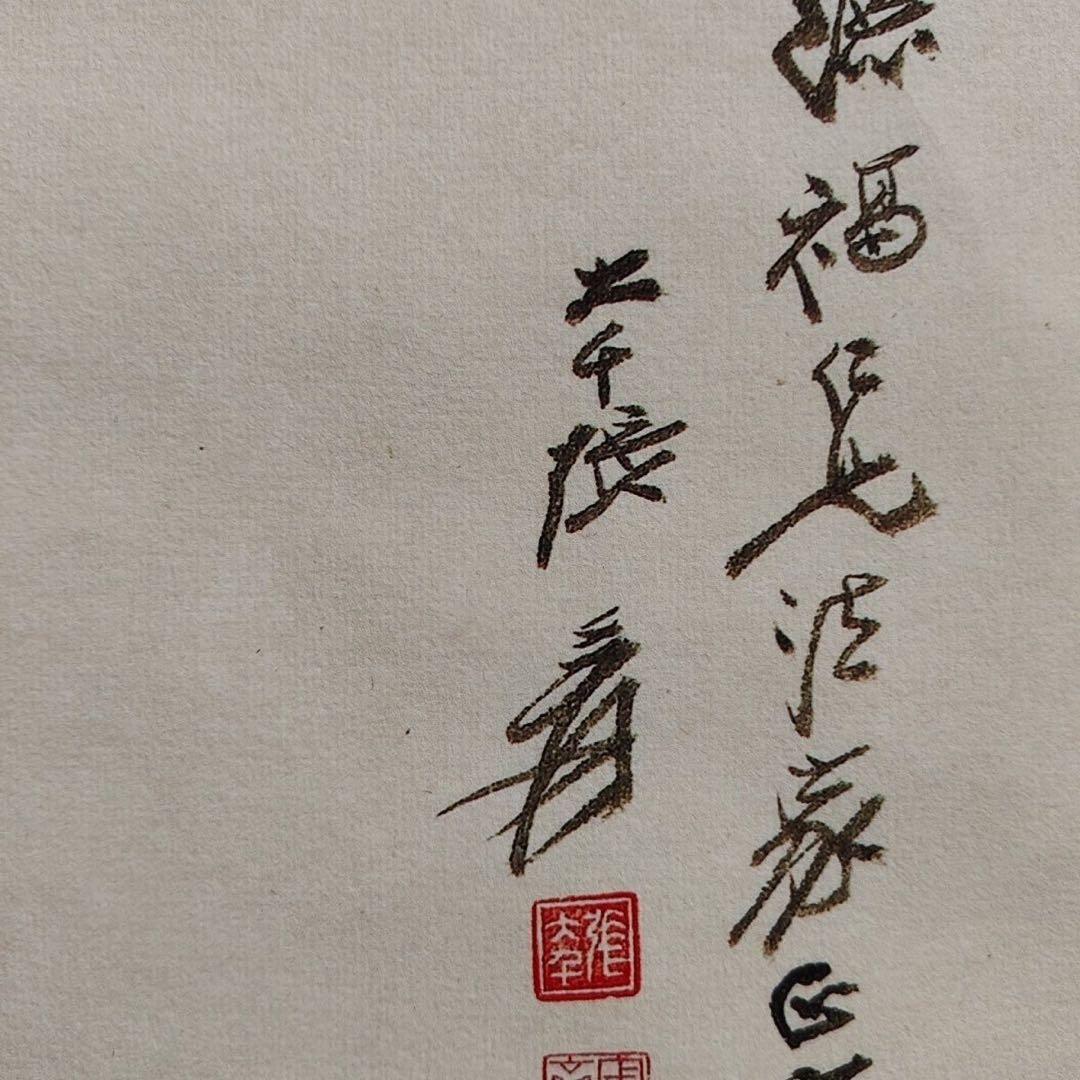 福仁兄法家正
大千張爰
張大千